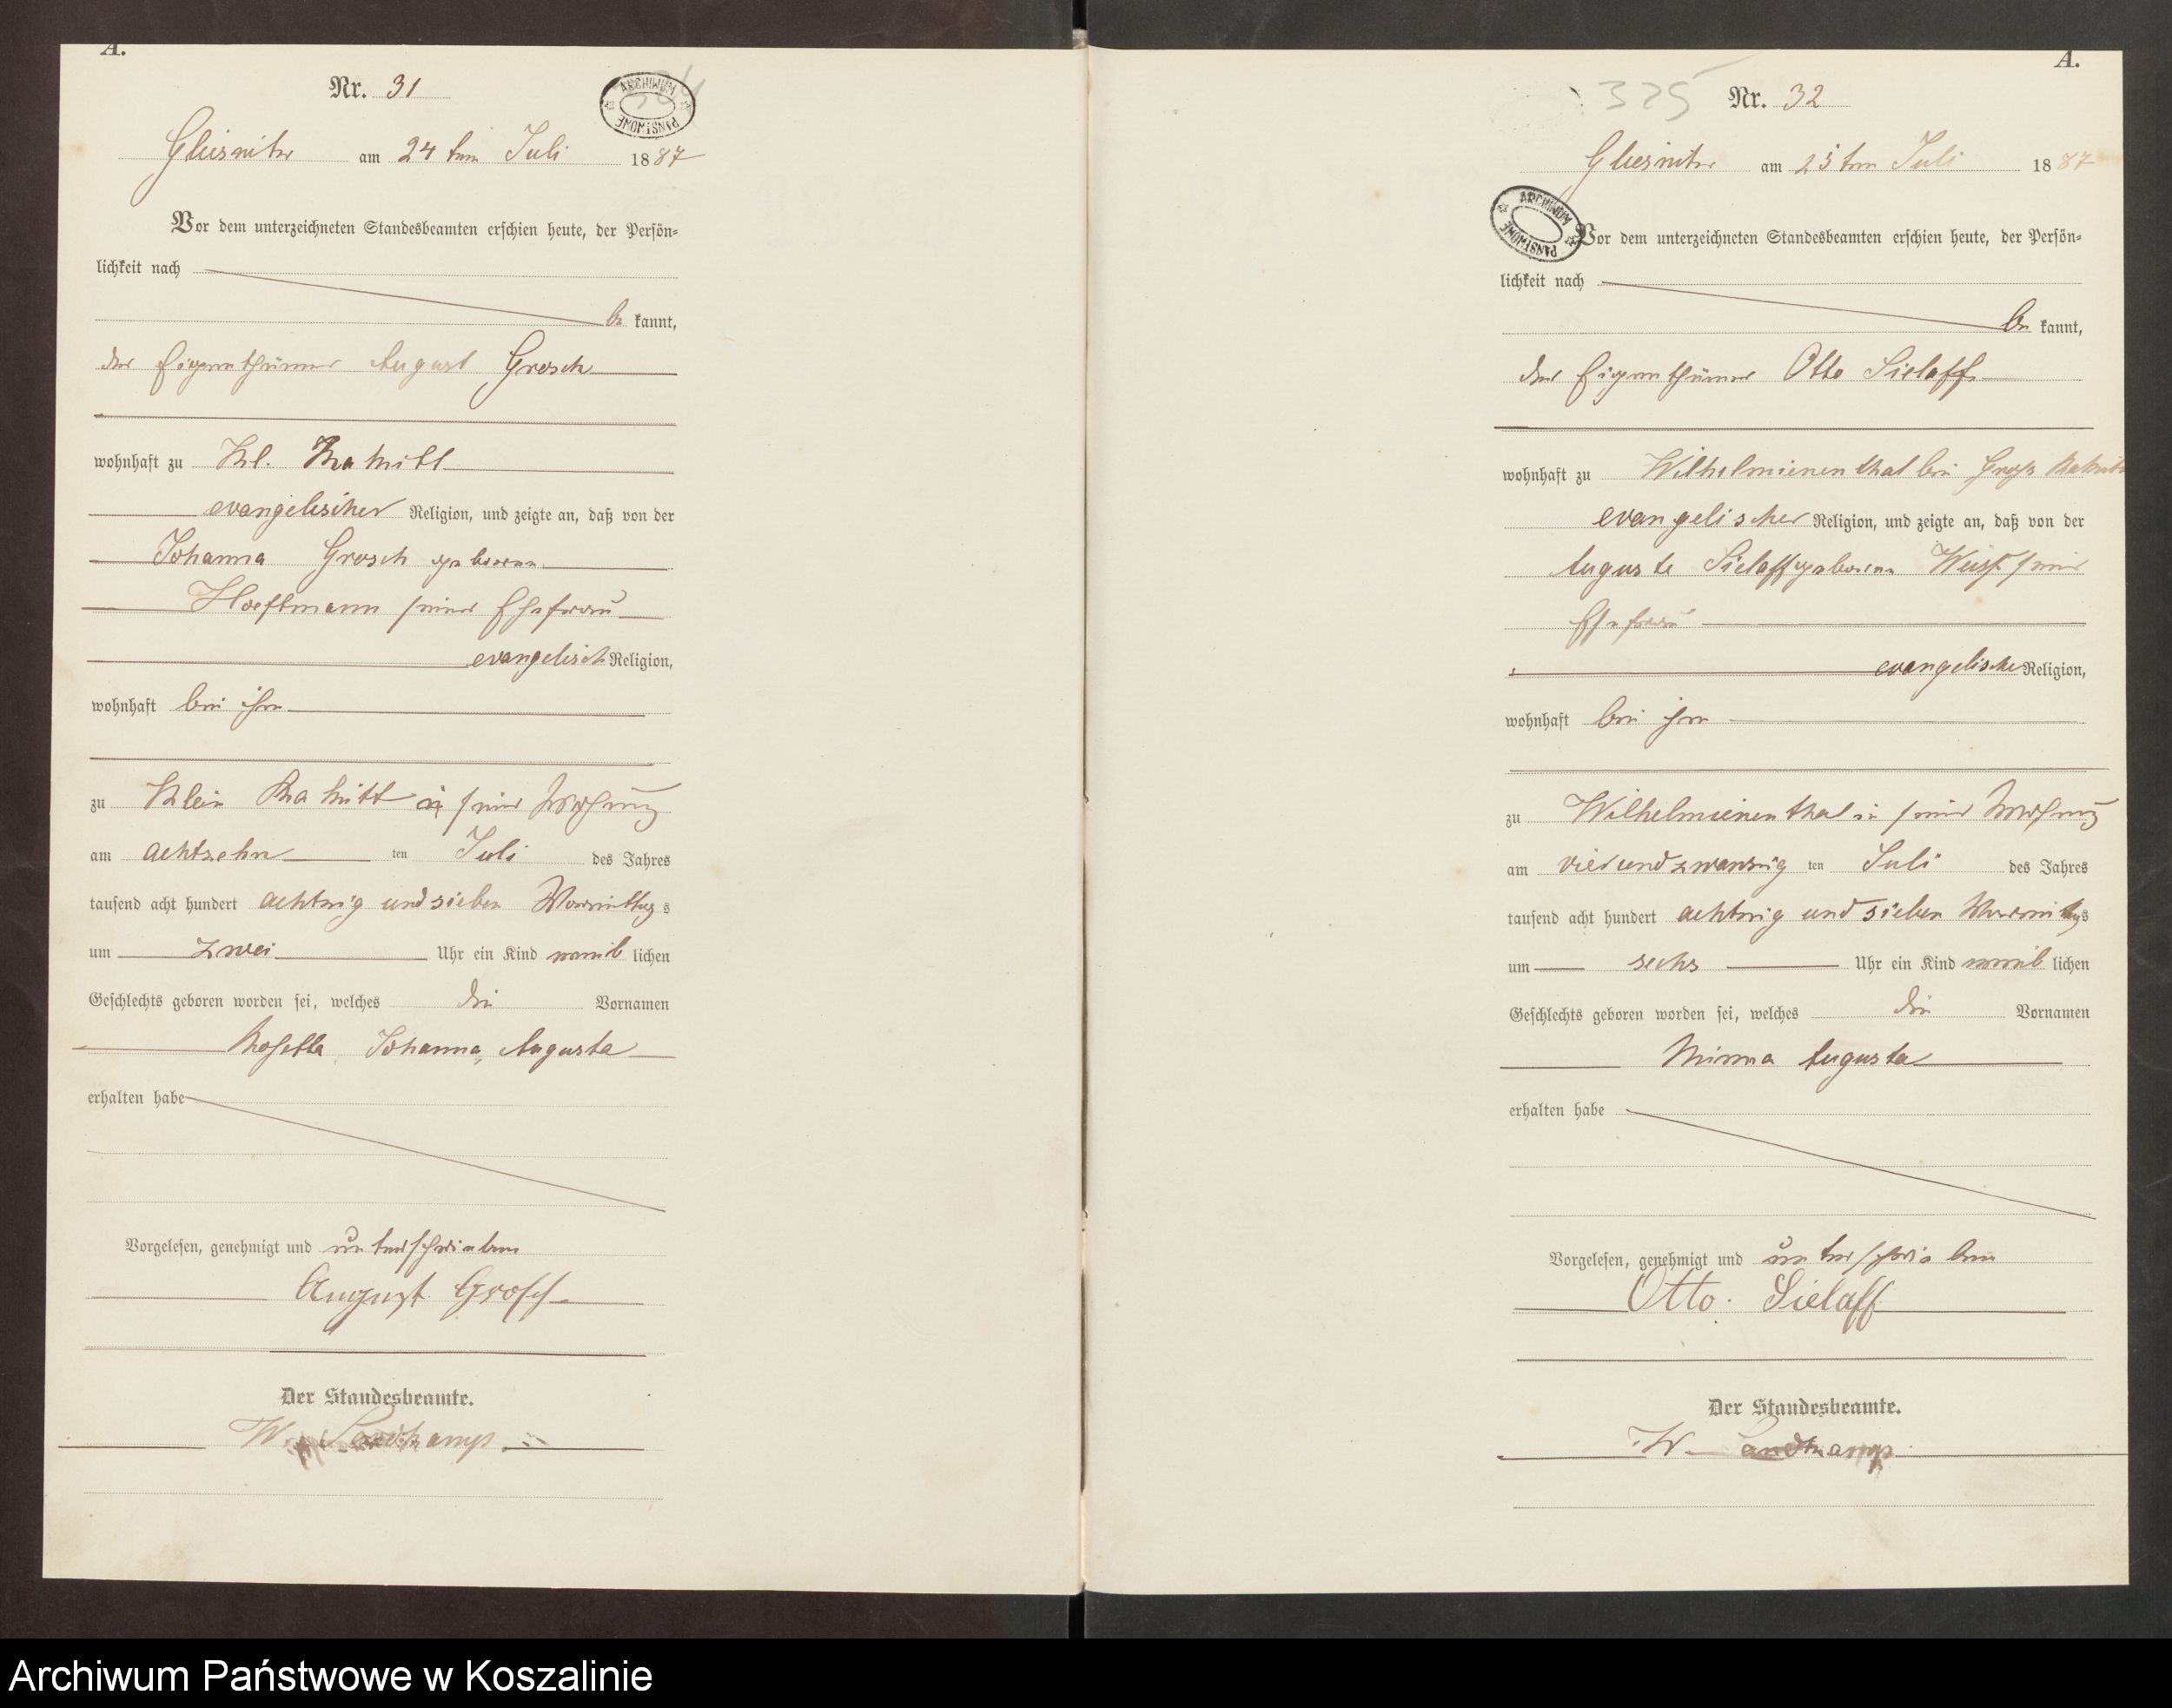 A.
Nr. 31
ARCHIWUM PAŃSTWOWE
Gliesnitz am 24 ten Juli 1887
Vor dem unterzeichneten Standesbeamten erschien heute, der Persön-
lichkeit nach
be kannt,
der Eigenthümer August Grosch
wohnhaft zu Kl. Rakitt
evangelischer Religion, und zeigte an, daß von der
Johanna Grosch geborenen
seiner Ehefrau
evangelisch Religion,
wohnhaft bei ihm
zu Klein Rakitt in seiner Wohnung
am achtzehn ten Juli des Jahres
tausend acht hundert achtzig und sieben Vormittags
um zwei Uhr ein Kind weib lichen
Geschlechts geboren worden sei, welches die Vornamen
Rosetta, Johanna, Augusta
erhalten habe
Vorgelesen, genehmigt und unterschrieben
August Grosch
Der Standesbeamte.
W. Sandkamp
A.
325 Nr. 32
Gliesnitz am 25 ten Juli 1887
ARCHIWUM PAŃSTWOWE
Vor dem unterzeichneten Standesbeamten erschien heute, der Persön-
lichkeit nach
be kannt,
der Eigenthümer Otto Sielaff
wohnhaft zu Wilhelmienenthal bei Groß Rakitt
evangelischer Religion, und zeigte an, daß von der
Auguste Sielaff geborenen seiner
Ehefrau
evangelische Religion,
wohnhaft bei ihm
zu Wilhelmienenthal in seiner Wohnung
am vierundzwanzig ten Juli des Jahres
tausend acht hundert achtzig und sieben Vormittags
um sechs Uhr ein Kind weib lichen
Geschlechts geboren worden sei, welches die Vornamen
Minna Augusta
erhalten habe
Vorgelesen, genehmigt und unterschrieben
Otto Sielaff
Der Standesbeamte.
W. Sandkamp
Archiwum Państwowe w Koszalinie